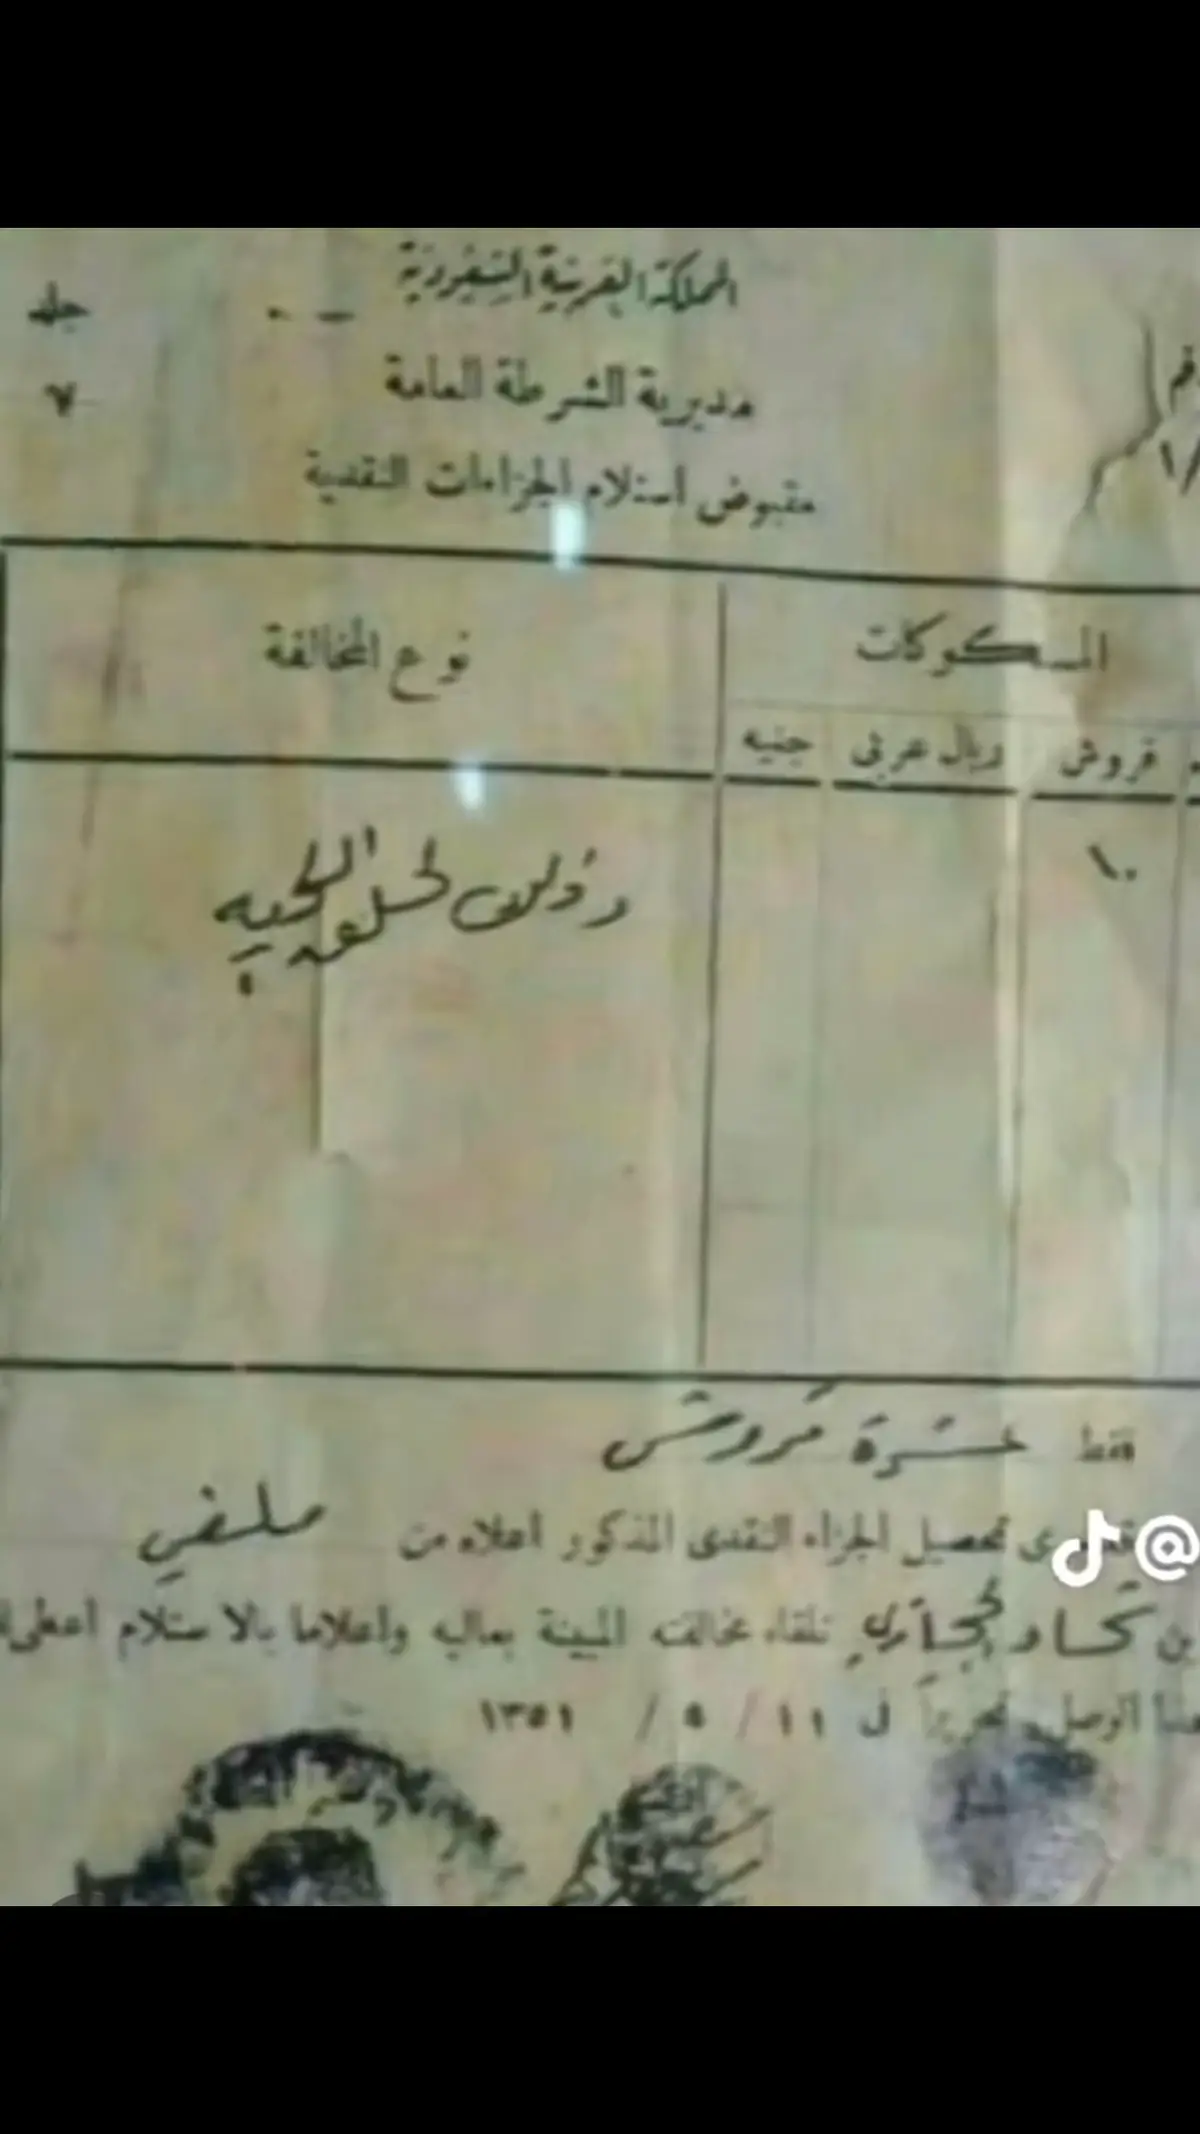 المملكة العربية السعودية
جلد
٧
قم
١/
مديرية الشرطة العامة
مقبوض استلام الجزاءات النقدية
المسكوكات
نوع المخالفة
قروش
ريال عربي
جنيه
١٠
وذلك لحلقه اللحية
فقط عشرة قروش
تحصيل الجزاء النقدى المذكور اعلاه من
بن تلقاء مخالفته المبينة بعاليه واعلاما بالاستلام اعطى
هذا الوصل تحريراً فى ١١ / ٥ / ١٣٥١
@